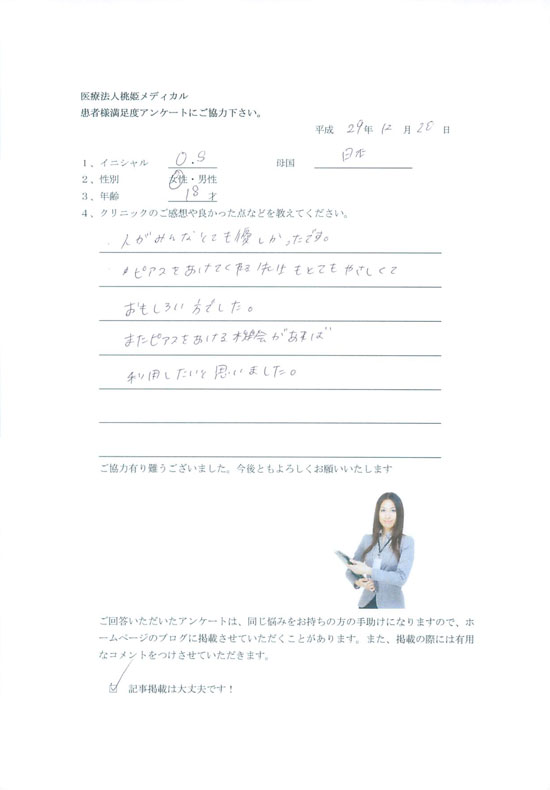 医療法人桃姫メディカル
患者様満足度アンケートにご協力下さい。
平成 29年 12月 28日
1、イニシャル O.S 母国 日本
2、性別 女性・男性
3、年齢 18才
4、クリニックのご感想や良かった点などを教えてください。
・人がみんなとても優しかったです。
ピアスをあけてくれる先生もとてもやさしくて
おもしろい方でした。
またピアスをあける機会があれば
利用したいと思いました。
ご協力有り難うございました。今後ともよろしくお願いいたします
ご回答いただいたアンケートは、同じ悩みをお持ちの方の手助けになりますので、ホ
ームページのブログに掲載させていただくことがあります。また、掲載の際には有用
なコメントをつけさせていただきます。
☑ 記事掲載は大丈夫です！